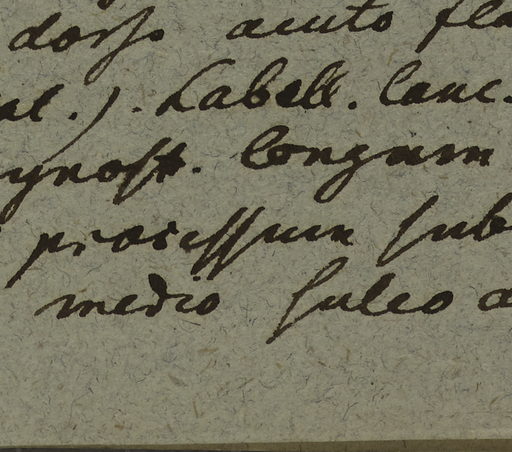 dorso acuto fla
al.). Labell. lanc.
gynost. longum
processum sub
medio sulco a